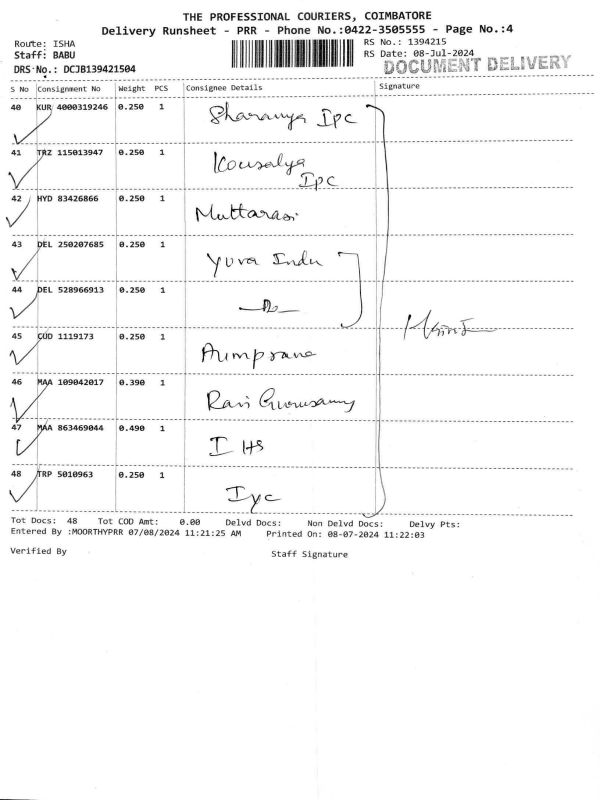 THE PROFESSIONAL COURIERS, COIMBATORE
Delivery Runsheet - PRR - Phone No.:0422-3505555 - Page No.:4
Route: ISHA
RS No.: 1394215
Staff: BABU
RS Date: 08-Jul-2024
DRS No.: DCJB139421504
DOCUMENT DELIVERY
S No Consignment No Weight PCS Consignee Details Signature
40 KUR 4000319246 0.250 1 Sharanya Ipc
41 TRZ 115013947 0.250 1 Kousalya
Ipc
42 HYD 83426866 0.250 1 Muttarasi
43 DEL 250207685 0.250 1 Yuva Indu
44 DEL 528966913 0.250 1 -Do-
45 CUD 1119173 0.250 1
46 MAA 109042017 0.390 1 Ravi Gurusamy
47 MAA 863469044 0.490 1 I HS
48 TRP 5010963 0.250 1 Iyc
Tot Docs: 48 Tot COD Amt: 0.00 Delvd Docs: Non Delvd Docs: Delvy Pts:
Entered By :MOORTHYPRR 07/08/2024 11:21:25 AM Printed On: 08-07-2024 11:22:03
Verified By Staff Signature